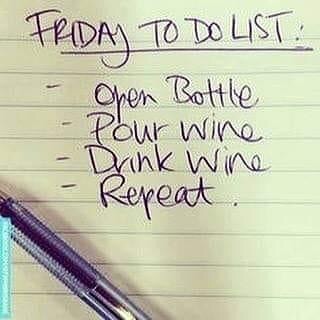 FRIDAY TO DO LIST:
- Open Bottle
- Pour wine
- Drink wine
- Repeat.